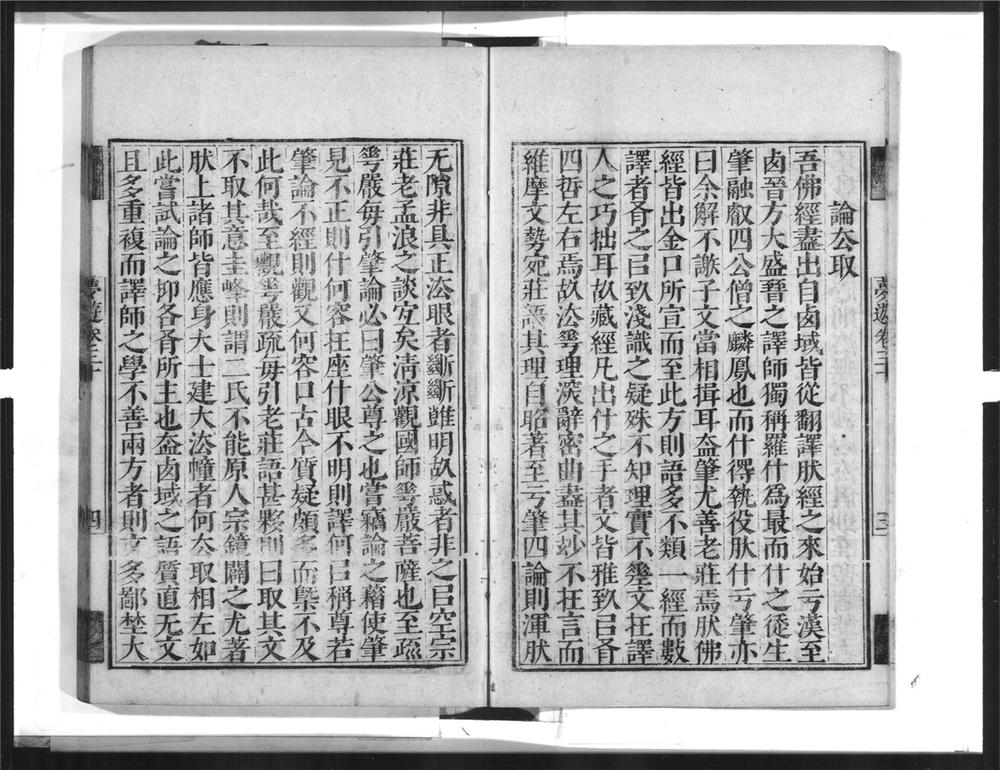 論厺取
吾佛經盡出自卤域皆從翻譯肰經之來始亐漢至
卤晉方大盛晉之譯師獨稱羅什為最而什之徒生
肇融叡四公僧之麟鳳也而什得執役肰什亐肇亦
曰余解不謝子文當相揖耳盇肇尤善老莊焉肰佛
經皆出金口所宣而至此方則語多不類一經而數
譯者㕛之㠯致淺識之疑殊不知理實不差文在譯
人之巧拙耳故藏經凡出什之手者文皆雅致㠯㕛
四哲左右焉故法華理深辭密曲盡其妙不在言而
維摩文勢宛莊語其理自昭著至亐肇四論則渾肰
无隙非具正法眼者斷斷難明故惑者非之㠯空宗
莊老孟浪之談宜矣清凉觀國師華嚴菩薩也至疏
華嚴每引肇論必曰肇公尊之也嘗竊論之藉使肇
見不正則什何容在座什眼不明則譯何㠯稱尊若
肇論不經則觀又何容口古今質疑頗多而槩不及
此何哉至觀華嚴疏每引老莊語甚夥則曰取其文
不取其意圭峰則謂二氏不能原人宗鏡闢之尤著
肰上諸師皆應身大士建大法幢者何厺取相左如
此嘗試論之抑各㕛所主也盇卤域之語質直无文
且多重複而譯師之學不善兩方者則文多鄙埜大
夢遊卷三十
三
夢遊卷三十
四